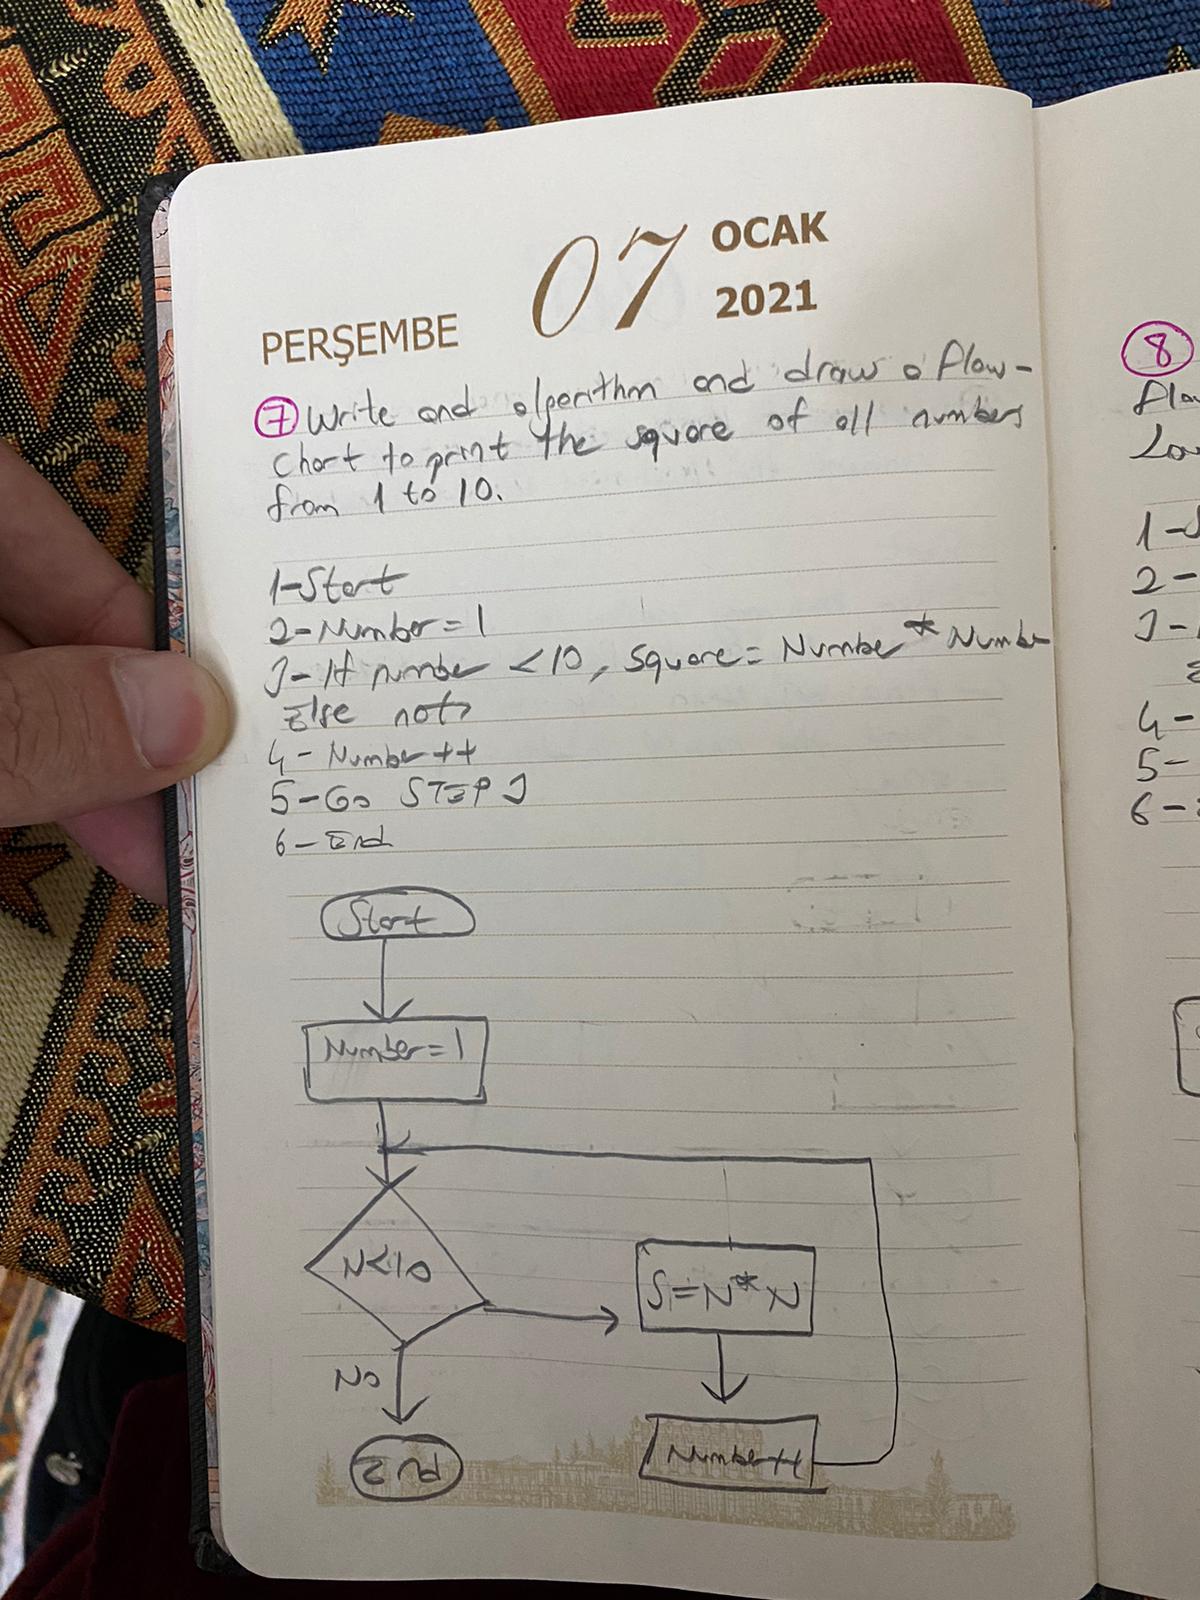 PERŞEMBE 07 OCAK 2021
7 Write and algorithm and draw a flow-
chart to print the square of all numbers
from 1 to 10.
1-Start
2-Number=1
3-If number <10, Square=Number*Number
Else not
4-Number++
5-Go STEP 3
6-End
Start
Number=1
N<10
S=N*N
No
Number++
End
8
1-S
2-
3-
4-
5-
6-